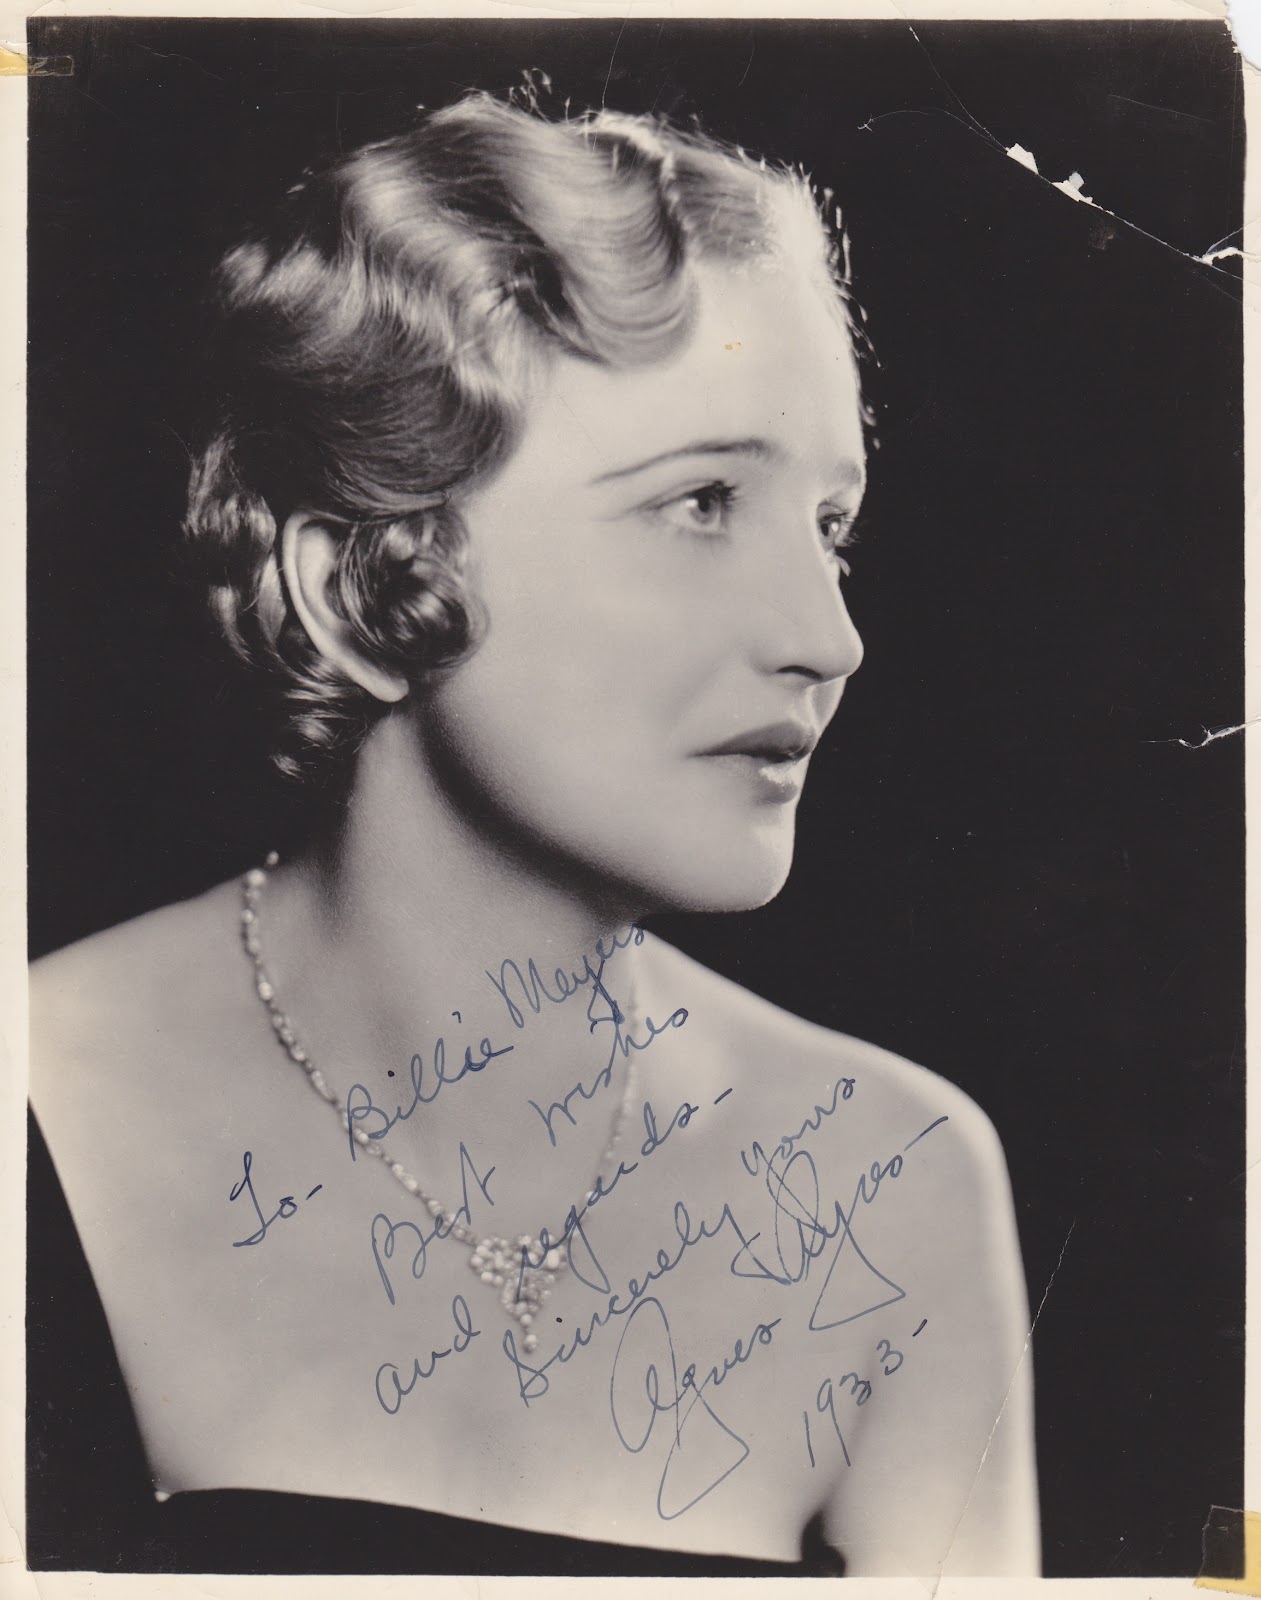 To- Billie Meyers
Best wishes
and regards-
Sincerely yours
Agnes Ayres-
1933-